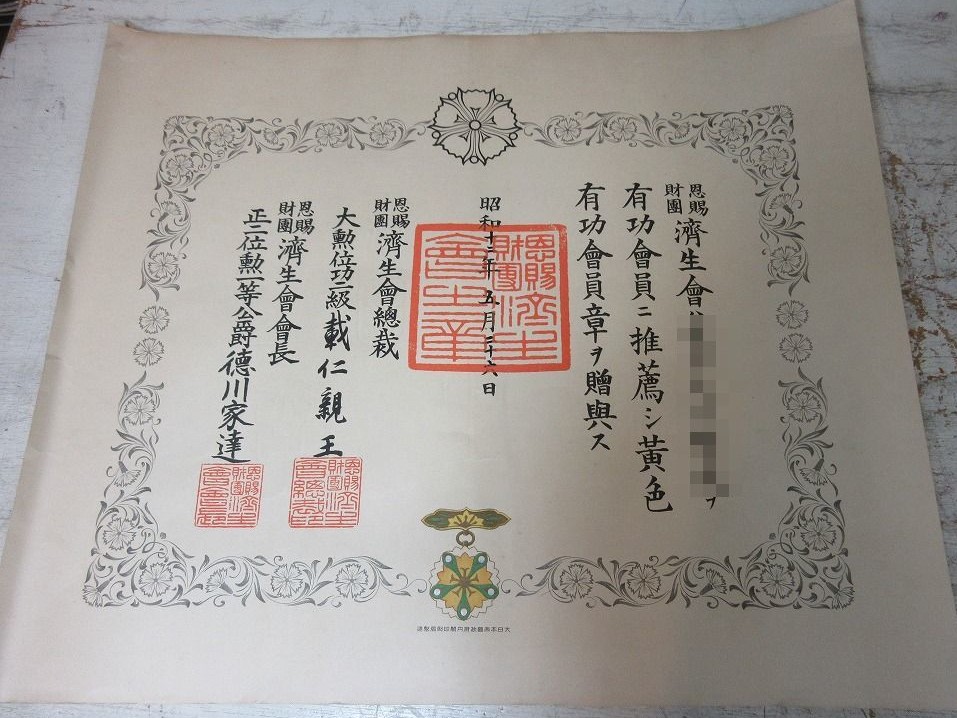 恩賜財團濟生會
ヲ
有功會員ニ推薦シ黃色
有功會員章ヲ贈與ス
昭和十二年五月二十六日
恩賜財團濟生會之章
恩賜財團濟生會總裁
大勲位功二級載仁親王
恩賜財團濟生會會長
正二位勲一等公爵德川家達
大日本帝國政府内閣印刷局製造